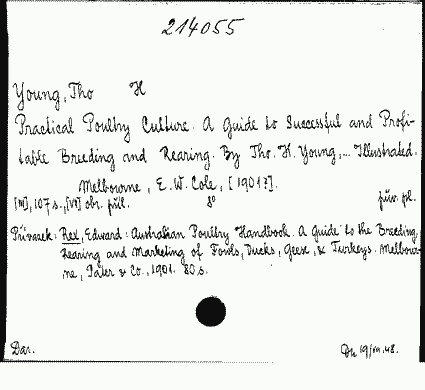 214055
Young, Tho H
Practical Poultry Culture. A Guide to Successful and Profi-
table Breeding and Rearing. By Tho. H. Young,... Illustrated.
Melbourne, E. W. Cole, [1901?].
107 s., obr. příl. 8° pův. pl.
Přívazek: Rex, Edward: Australian Poultry Handbook. A Guide to the Breeding,
Rearing and Marketing of Fowls, Ducks, Geese, & Turkeys. Melbour-
ne, Pater & Co., 1901. 80 s.
Dar. 19/III.48.